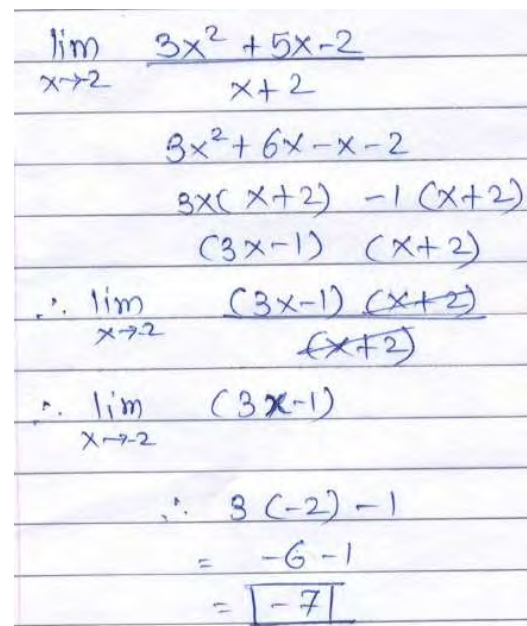 lim 3x² + 5x - 2
x→-2 x + 2
3x² + 6x - x - 2
3x( x+2) -1 (x+2)
(3x-1) (x+2)
∴ lim (3x-1) (x+2)
x→-2 (x+2)
∴ lim (3x-1)
x→-2
∴ 3 (-2) - 1
= -6 - 1
= -7